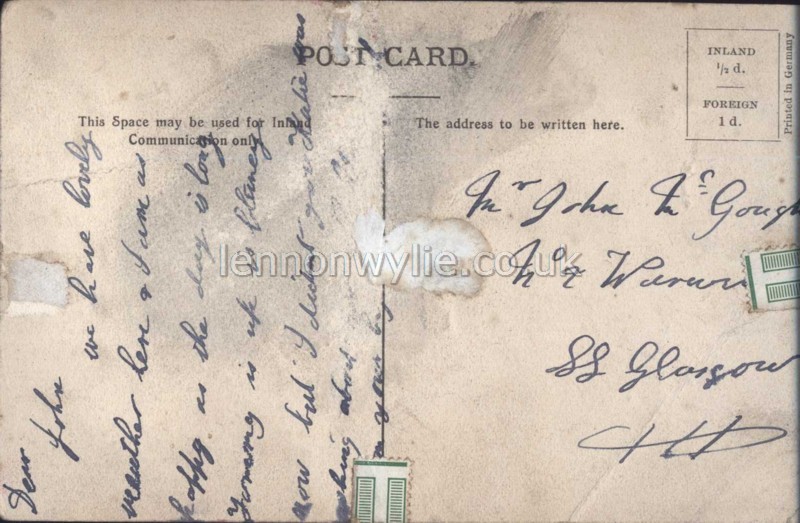 POST CARD.
This Space may be used for Inland
Communication only.
The address to be written here.
INLAND
½ d.
FOREIGN
1 d.
Printed in Germany
Dear
John
we have lovely
weather here & I am as
happy as the day is long
is up
now but I didnt was
about
Mr John McGough
No 7
SS Glasgow
lennonwylie.co.uk